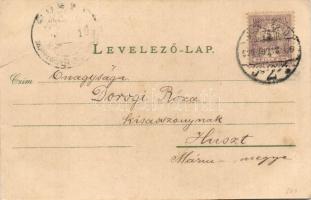 LEVELEZŐ-LAP.
Czim Önagysága
Dorogi Róza
kisasszonynak
Huszt
megye